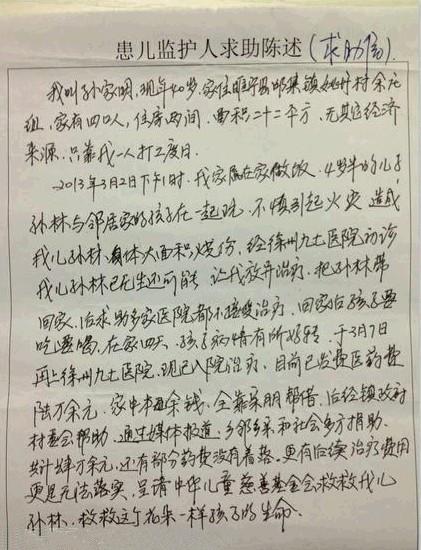 患儿监护人求助陈述(求助信).
我叫孙家明,现年40岁,家住睢宁县邱集镇 村余元
组,家有四口人,住房两间,面积二十二平方,无其它经济
来源,只靠我一人打工度日.
2013年3月2日下午1时,我家属在家做饭,4岁半的儿子
孙林与邻居家的孩子在一起玩,不慎引起火灾,造成
我儿孙林身体大面积烧伤,经徐州九七医院初诊
我儿孙林已无生还可能,让我放弃治疗,把孙林带
回家,后求助多家医院都不接受治疗,回家后孩子要
吃要喝,在家四天,孩子病情有所好转,于3月7日
再上徐州九七医院,现已入院治疗,目前已发费医药费
陆万余元,家中本无余钱,全靠亲朋帮借,后经镇政府
村委会帮助,通过媒体报道,乡邻乡亲和社会多方捐助,
共计 万余元,还有部分药费没有着落,更有后续治疗费用
更是无法落实,呈请中华儿童慈善基金会救救我儿
孙林,救救这个花朵一样孩子的生命.